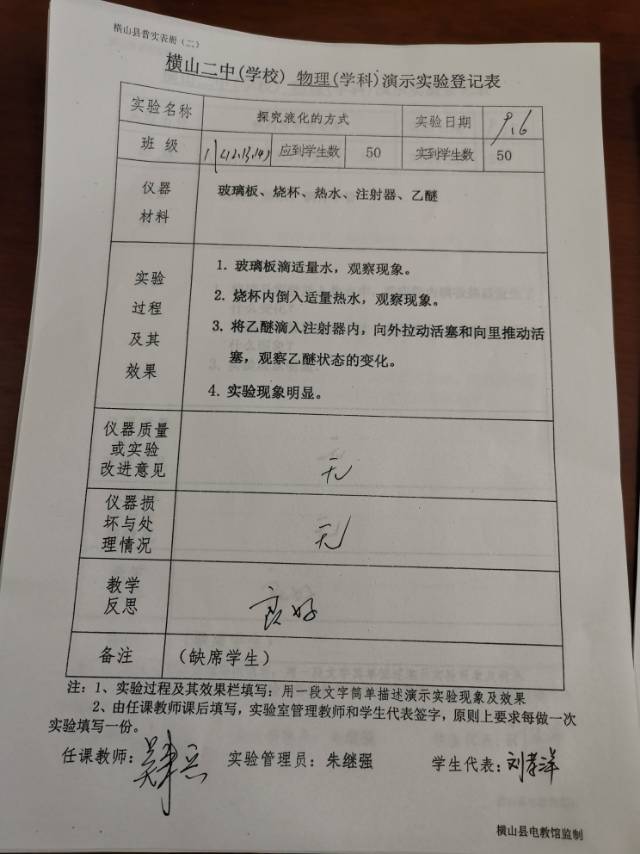 横山县普实表册（二）
横山二中(学校) 物理(学科)演示实验登记表
实验名称 探究液化的方式 实验日期 9.6
班 级 应到学生数 50 实到学生数 50
仪器 玻璃板、烧杯、热水、注射器、乙醚
材料
实验 1. 玻璃板滴适量水，观察现象。
过程 2. 烧杯内倒入适量热水，观察现象。
及其 3. 将乙醚滴入注射器内，向外拉动活塞和向里推动活
效果 塞，观察乙醚状态的变化。
4. 实验现象明显。
仪器质量
或实验
改进意见 无
仪器损
坏与处 无
理情况
教学
反思 良好
备注 （缺席学生）
注：1、实验过程及其效果栏填写：用一段文字简单描述演示实验现象及效果
2、由任课教师课后填写，实验室管理教师和学生代表签字，原则上要求每做一次
实验填写一份。
任课教师： 实验管理员：朱继强 学生代表：
横山县电教馆监制